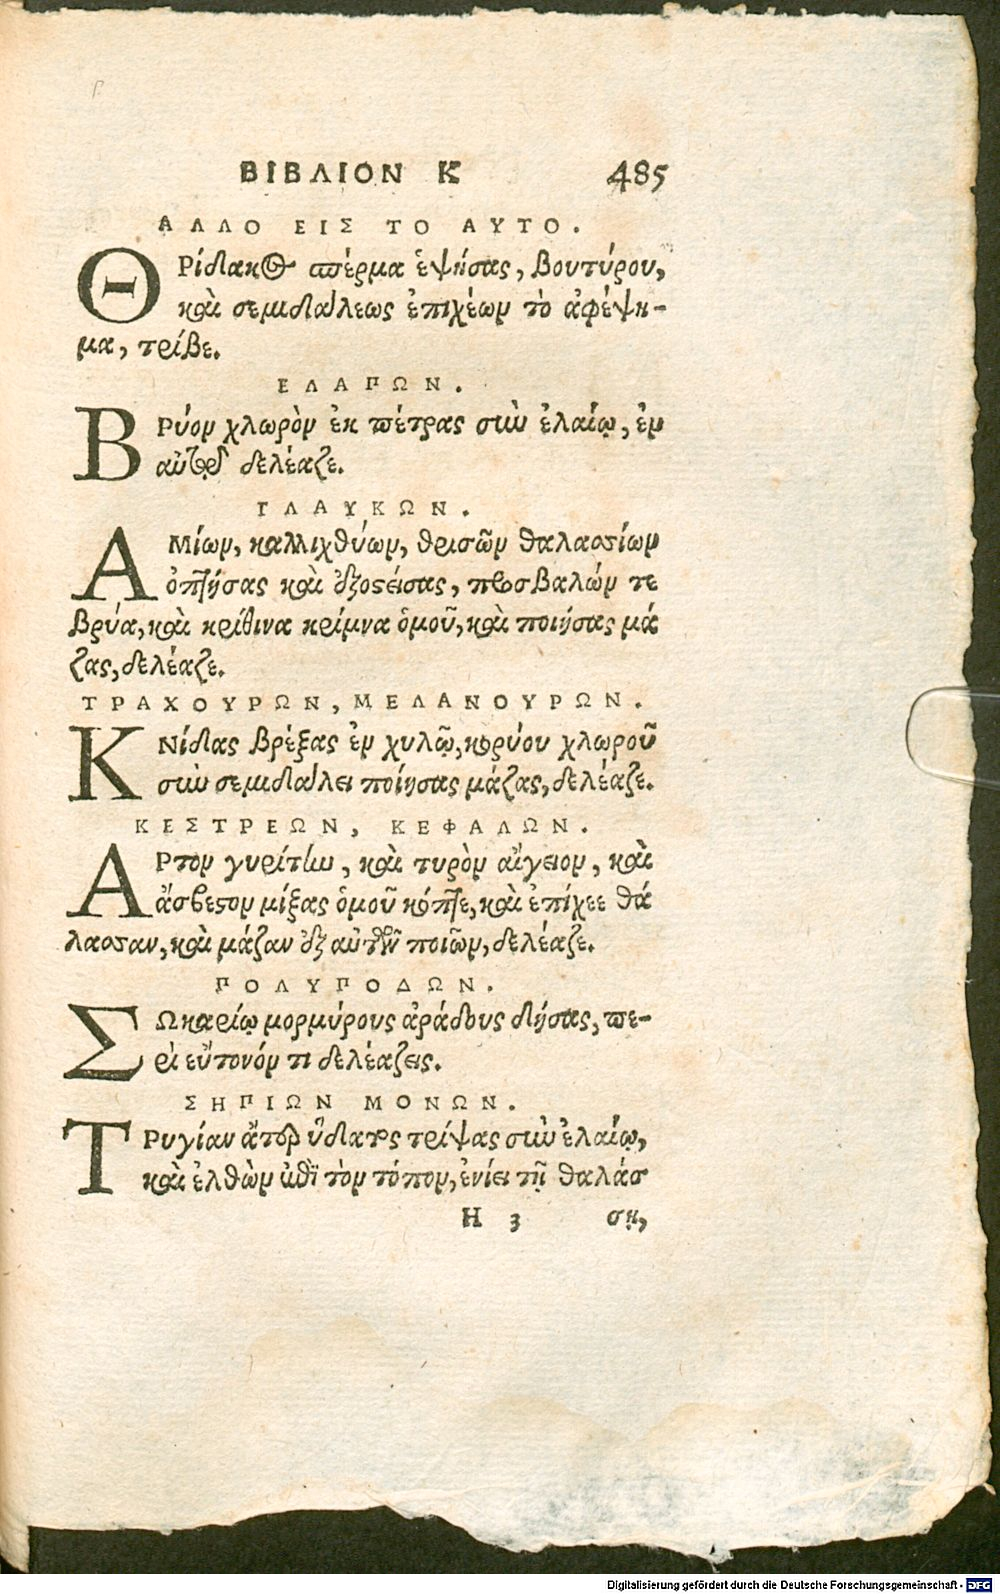 ΒΙΒΛΙΟΝ Κ 485
ΑΛΛΟ ΕΙΣ ΤΟ ΑΥΤΟ.
ΘΡίδακος σπέρμα ἑψήσας, βουτύρου,
καὶ σεμιδάλεως ἐπιχέων τὸ ἀφέψη-
μα, τρίβε.
ΕΛΑΠΩΝ.
ΒΡύον χλωρὸν ἐκ πέτρας σὺν ἐλαίῳ, ἐν
αὐτῷ δελέαζε.
ΓΛΑΥΚΩΝ.
ΑΜίων, καλλιχθύων, θρισῶν θαλασσίων
ὀπτήσας καὶ ἐξοστείσας, προσβαλών τε
βρύα, καὶ κρίθινα κρίμνα ὁμοῦ, καὶ ποιήσας μά
ζας, δελέαζε.
ΤΡΑΧΟΥΡΩΝ, ΜΕΛΑΝΟΥΡΩΝ.
ΚΝίδας βρέξας ἐν χυλῷ, κορύου χλωροῦ
σὺν σεμιδάλει ποίησας μάζας, δελέαζε.
ΚΕΣΤΡΕΩΝ, ΚΕΦΑΛΩΝ.
ΑΡτον γυρίτην, καὶ τυρὸν αἴγειον, καὶ
ἄσβεστον μίξας ὁμοῦ κόπτε, καὶ ἐπίχεε θά
λασσαν, καὶ μάζαν ἐξ αὐτῶν ποιῶν, δελέαζε.
ΠΟΛΥΠΟΔΩΝ.
ΣΩκαρίῳ μορμύρους ἀράδους δήσας, πε-
ρὶ εὔτονόν τι δελέαζεις.
ΣΗΠΙΩΝ ΜΟΝΩΝ.
ΤΡυγίαν ἄτερ ὕδατος τρίψας σὺν ἐλαίῳ,
καὶ ἐλθὼν ἐπὶ τὸν τόπον, ἐνίει τῇ θαλάσ
Η 3 σῃ,
Digitalisierung gefördert durch die Deutsche Forschungsgemeinschaft - DFG